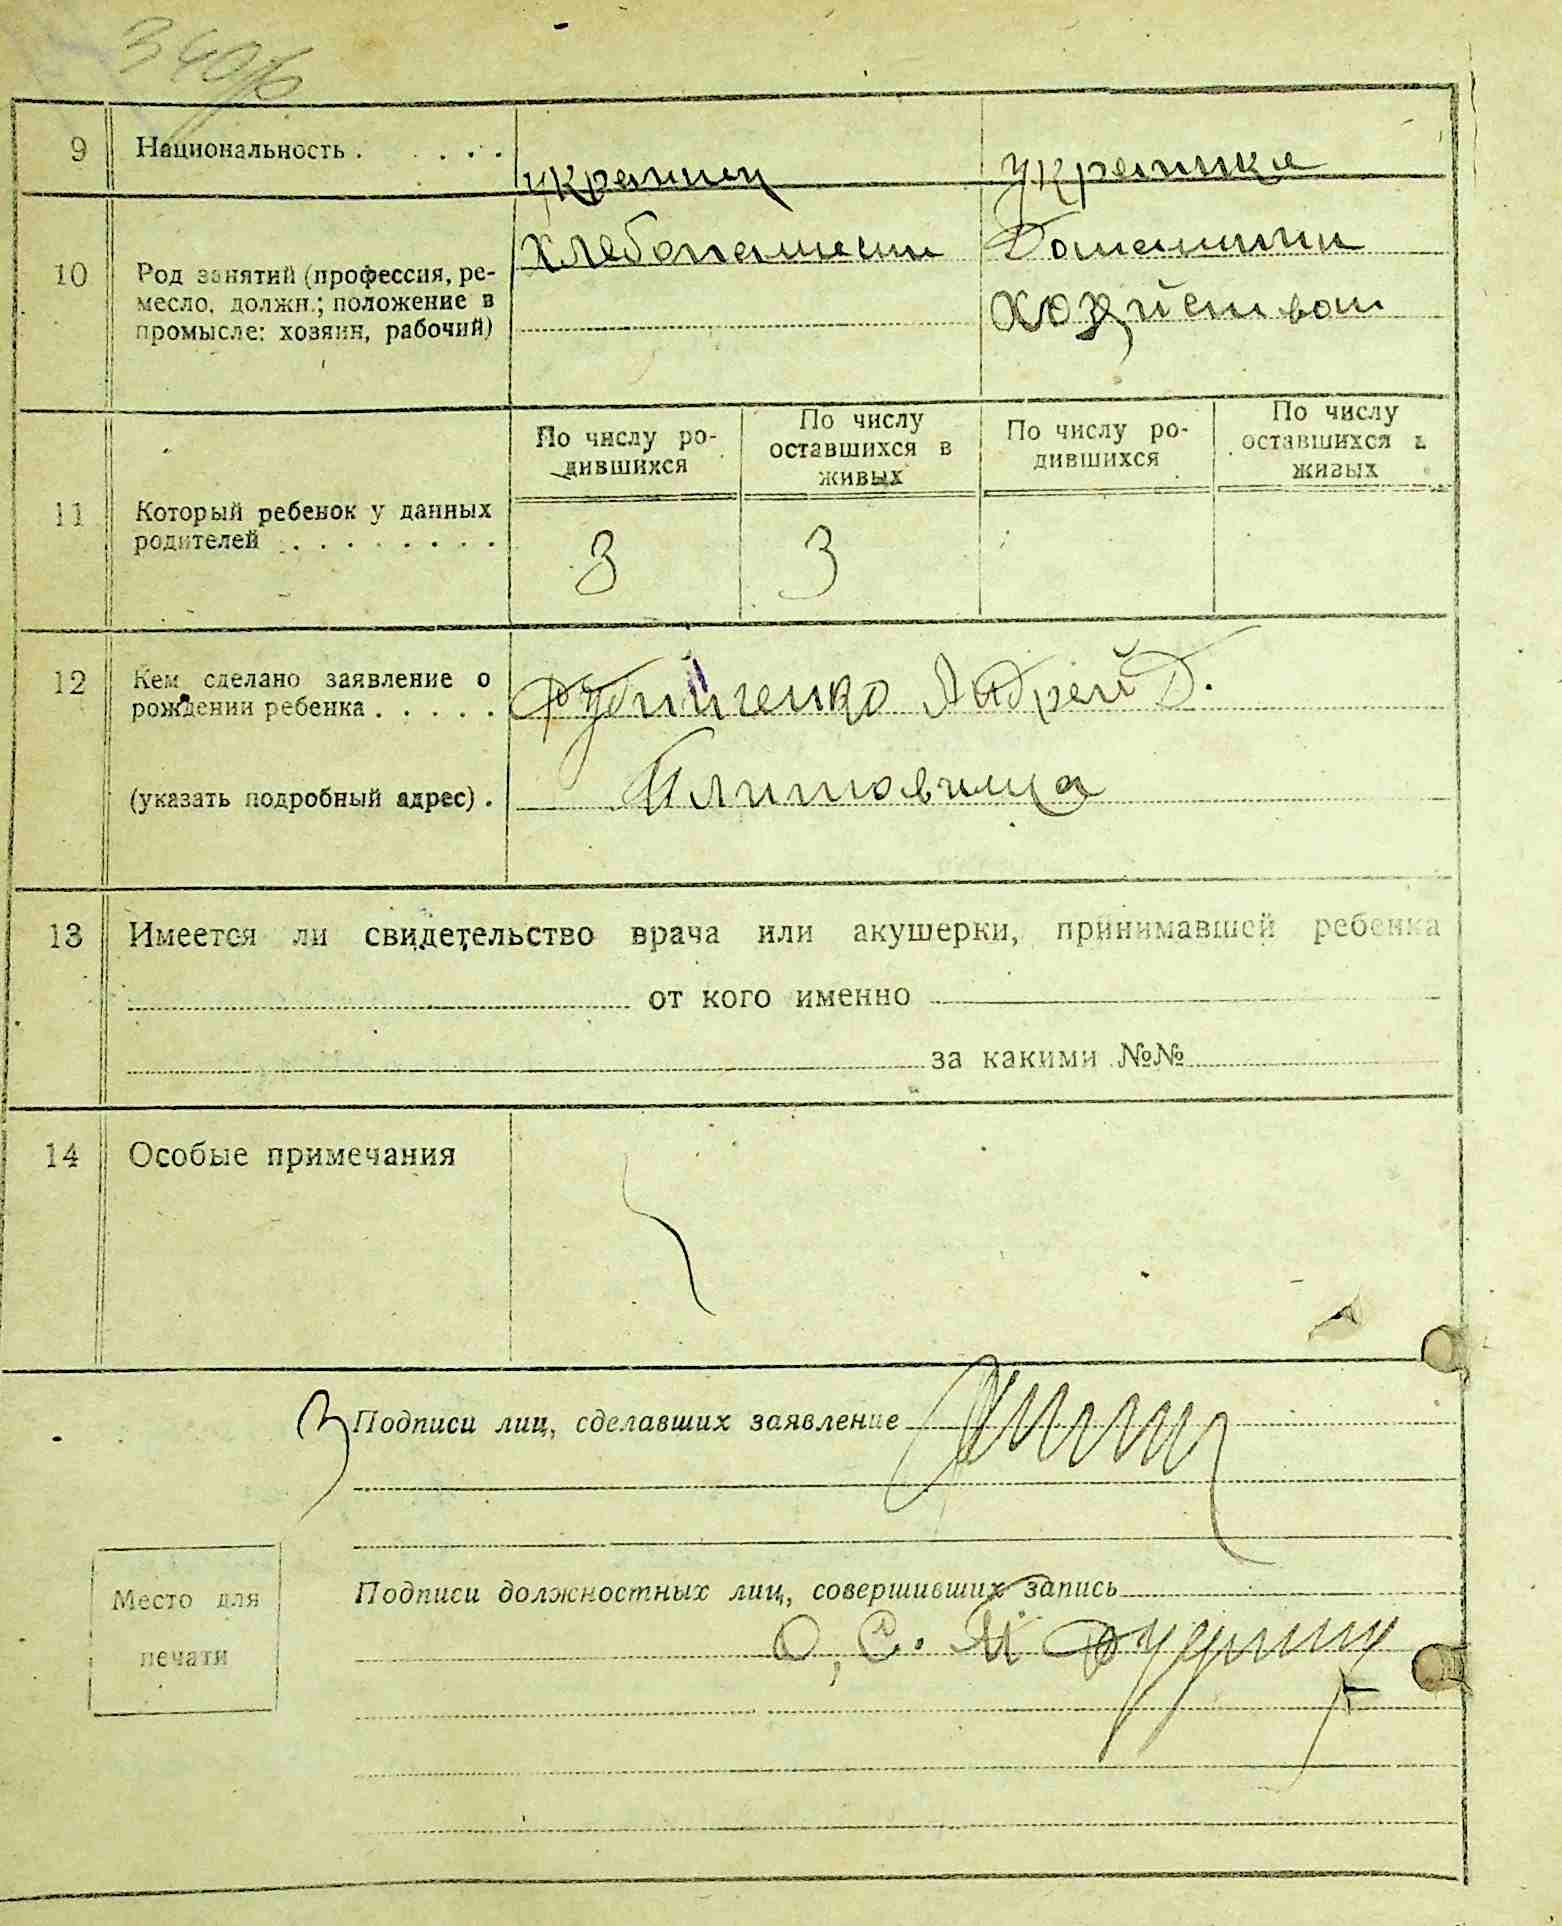 340
9 Национальность . . . . . украинец украинка
10 Род занятий (профессия, ре-
месло, должн.; положение в
промысле: хозяин, рабочий)
хлебопашество Домашним
хозяйством
11 Который ребенок у данных
родителей . . . . . . . .
По числу ро-
дившихся
По числу
оставшихся в
живых
По числу ро-
дившихся
По числу
оставшихся в
живых
3 3
12 Кем сделано заявление о
рождении ребенка . . . . . Андрей Д.
(указать подробный адрес) .
13 Имеется ли свидетельство врача или акушерки, принимавшей ребенка
от кого именно
за какими №№
14 Особые примечания
Подписи лиц, сделавших заявление
Место для
печати
Подписи должностных лиц, совершивших запись